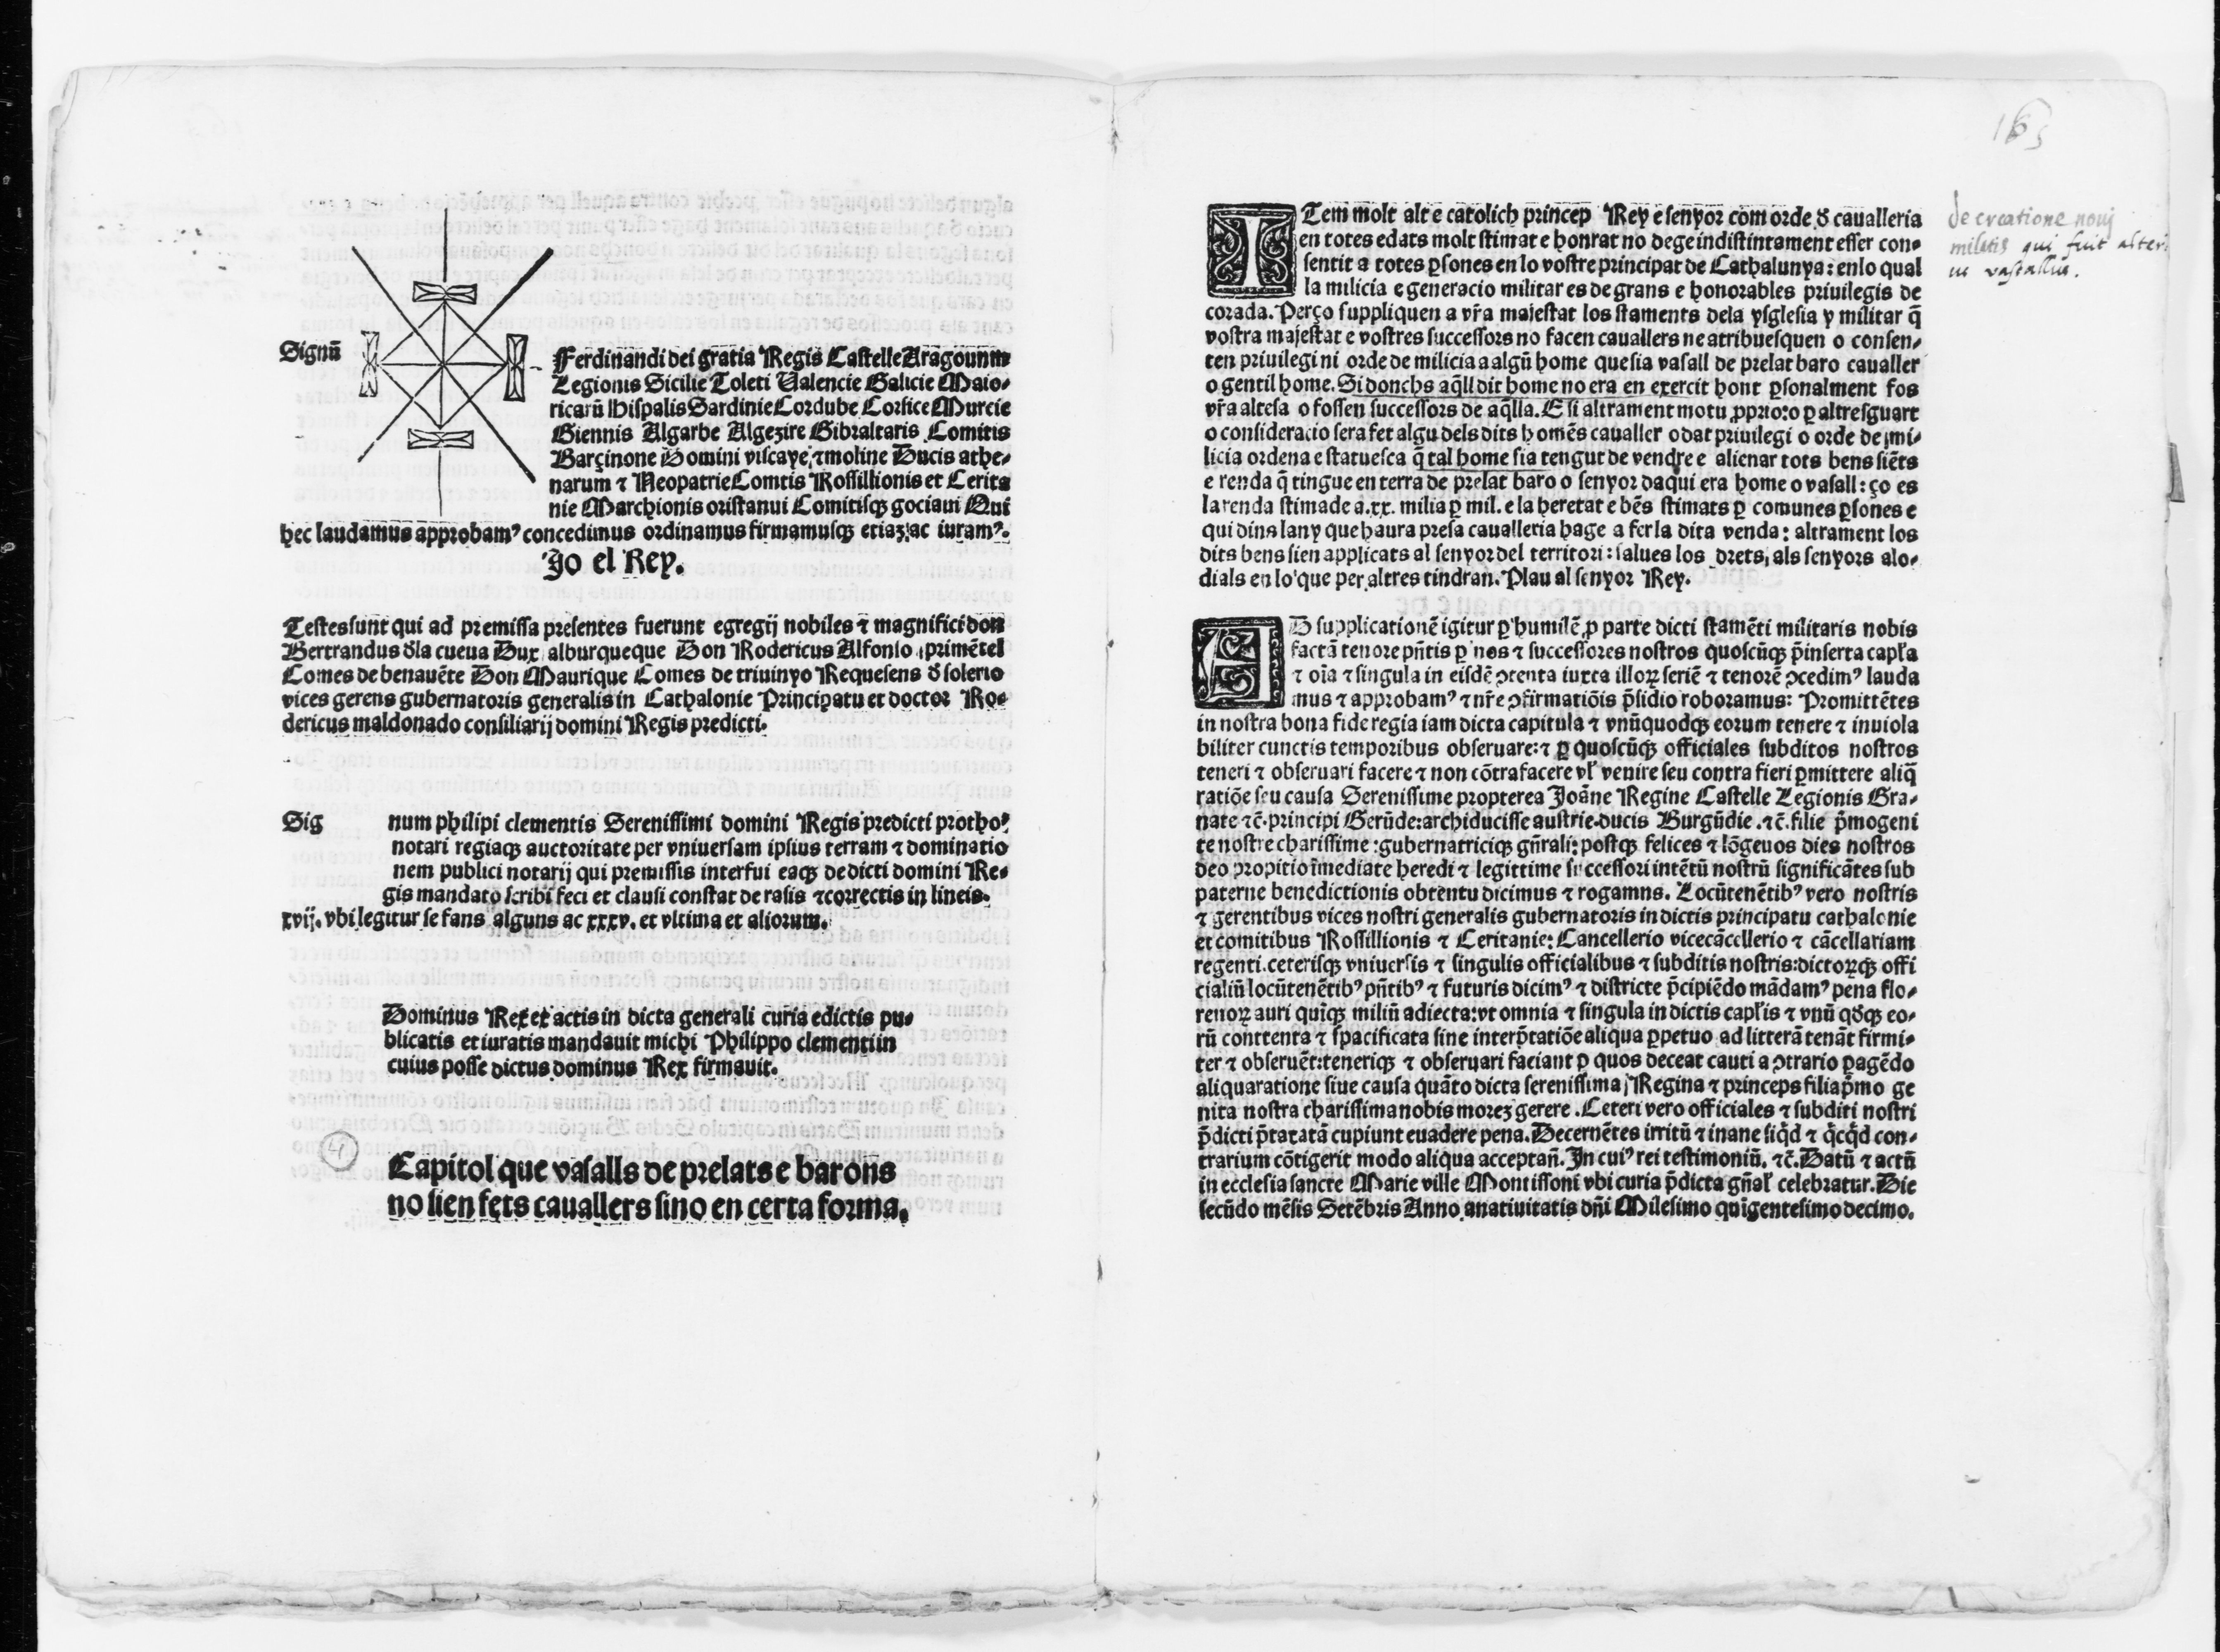 Signū
Ferdinandi dei gratia Regis Castelle Aragonum
Legionis Sicilie Toleti Valencie Galicie Maio-
ricarū Hispalis Sardinie Cordube Corsice Murcie
Giennis Algarbe Algezire Gibraltaris Comitis
Barçinone Domini viscaye, ⁊ moline Ducis athe-
narum ⁊ Neopatrie Comtis Rossillionis et Cerita
nie Marchionis oristanui Comitisqꝫ gociani Qui
hec laudamus approbamꝰ concedimus ordinamus firmamusqꝫ etiaꝫ ac iuramꝰ.
Jo el Rey.
Testes sunt qui ad premissa presentes fuerunt egregij nobiles ⁊ magnifici don
Bertrandus d̄la cueua Dux alburqueque Don Rodericus Alfonso primētel
Comes de benauēte Don Maurique Comes de triuinyo Requesens d̄ solerio
vices gerens gubernatoris generalis in Cathalonie Principatu et doctor Ro-
dericus maldonado consiliarij domini Regis predicti.
Sig num philipi clementis Serenissimi domini Regis predicti prothoꝰ
notari regiaqꝫ auctoritate per vniuersam ipsius terram ⁊ dominatio
nem publici notarij qui premissis interfui eaqꝫ de dicti domini Re-
gis mandato scribi feci et clausi constat de rasis ⁊ correctis in lineis.
xvij. vbi legitur se fans alguns ac xxxv. et vltima et aliorum.
Dominus Rex ex actis in dicta generali curia edictis pu-
blicatis et iuratis mandauit michi Philippo clementi in
cuius posse dictus dominus Rex firmauit.
Capitol que vasalls de prelats e barons
no sien fets cauallers sino en certa forma.
de creatione noui
militis qui fuit alteri
us vassallus.
ITem molt alt e catolich princep Rey e senyor com orde d̄ caualleria
en totes edats molt stimat e honrat no dege indistintament esser con-
sentit a totes ꝑsones en lo vostre principat de Cathalunya: en lo qual
la milicia e generacio militar es de grans e honorables priuilegis de
corada. Perço suppliquen a vr̄a maiestat los staments dela ysglesia y militar q̄
vostra majestat e vostres successors no facen cauallers ne atribuesquen o consen-
ten priuilegi ni orde de milicia a algū home que sia vasall de prelat baro caualler
o gentil home. Si donchs aq̄ll dit home no era en exercit hont ꝑsonalment fos
vr̄a altesa o fossen successors de aq̄lla. E si altrament motu ꝓprio: o ꝑ altre sguart
o consideracio sera fet algu dels dits homēs caualler o dat priuilegi o orde de mi-
licia ordena e statuesca q̄ tal home sia tengut de vendre e alienar tots bens siēts
e renda q̄ tingue en terra de prelat baro o senyor daqui era home o vasall: ço es
la renda stimade a .xx. milia ꝑ mil. e la heretat e bēs stimats ꝑ comunes ꝑsones e
qui dins lany que haura presa caualleria hage a fer la dita venda: altrament los
dits bens sien applicats al senyor del territori: salues los drets, als senyors alo-
dials en lo que per altres tindran. Plau al senyor Rey.
AD supplicationē igitur ꝑ humilē ꝓ parte dicti stamēti militaris nobis
factā tenore pn̄tis ꝑ nos ⁊ successores nostros quoscūqꝫ p̄inserta capl̄a
⁊ oīa ⁊ singula in eisdē ꝯtenta iuxta illoꝝ seriē ⁊ tenorē ꝯcedimꝰ lauda
mus ⁊ approbamꝰ ⁊ nr̄e ꝯfirmatiōis p̄sidio roboramus: Promittētes
in nostra bona fide regia iam dicta capitula ⁊ vnūquodqꝫ eorum tenere ⁊ inuiola
biliter cunctis temporibus obseruare: ⁊ ꝑ quoscūqꝫ officiales subditos nostros
teneri ⁊ obseruari facere ⁊ non cōtrafacere vl̄ venire seu contra fieri ꝑmittere aliq̄
ratiōe seu causa Serenissime propterea Joāne Regine Castelle Legionis Gra-
nate ⁊c̄. principi Gerūde: archiducisse austrie. ducis Burgūdie. ⁊c̄. filie p̄mogeni
te nostre charissime: gubernatriciqꝫ gn̄rali: postqꝫ felices ⁊ lōgeuos dies nostros
deo propitio īmediate heredi ⁊ legittime successori intētū nostrū significātes sub
paterne benedictionis obtentu dicimus ⁊ rogamns. Locūtenētibꝰ vero nostris
⁊ gerentibus vices nostri generalis gubernatoris in dictis principatu cathalonie
et comitibus Rossillionis ⁊ Ceritanie: Cancellerio vicecācellerio ⁊ cācellariam
regenti. ceterisqꝫ vniuersis ⁊ singulis officialibus ⁊ subditis nostris: dictoꝝqꝫ offi
cialiū locūtenētibꝰ pn̄tibꝰ ⁊ futuris dicimꝰ ⁊ districte p̄cipiēdo mādamꝰ pena flo-
renoꝝ auri quīqꝫ miliū adiecta: vt omnia ⁊ singula in dictis capl̄is ⁊ vnū qd̄qꝫ eo-
rū conttenta ⁊ spacificata sine interp̄tatiōe aliqua ꝑpetuo ad litterā tenāt firmi-
ter ⁊ obseruēt: teneriqꝫ ⁊ obseruari faciant ꝑ quos deceat cauti a ꝯtrario ꝑagēdo
aliqua ratione siue causa quāto dicta serenissima Regina ⁊ princeps filia p̄mo ge
nita nostra charissima nobis moreꝫ gerere. Ceteri vero officiales ⁊ subditi nostri
p̄dicti p̄taxatā cupiunt euadere pena. Decernētes irritū ⁊ inane siq̄d ⁊ q̄cq̄d con-
trarium cōtigerit modo aliqua acceptan̄. In cuiꝰ rei testimoniū. ⁊c̄. Datū ⁊ actū
in ecclesia sancte Marie ville Montissoni vbi curia p̄dicta gn̄al̄ celebratur. Die
secūdo mēsis Setēbris Anno anatiuitatis dn̄i Milesimo quīgentesimo decimo.